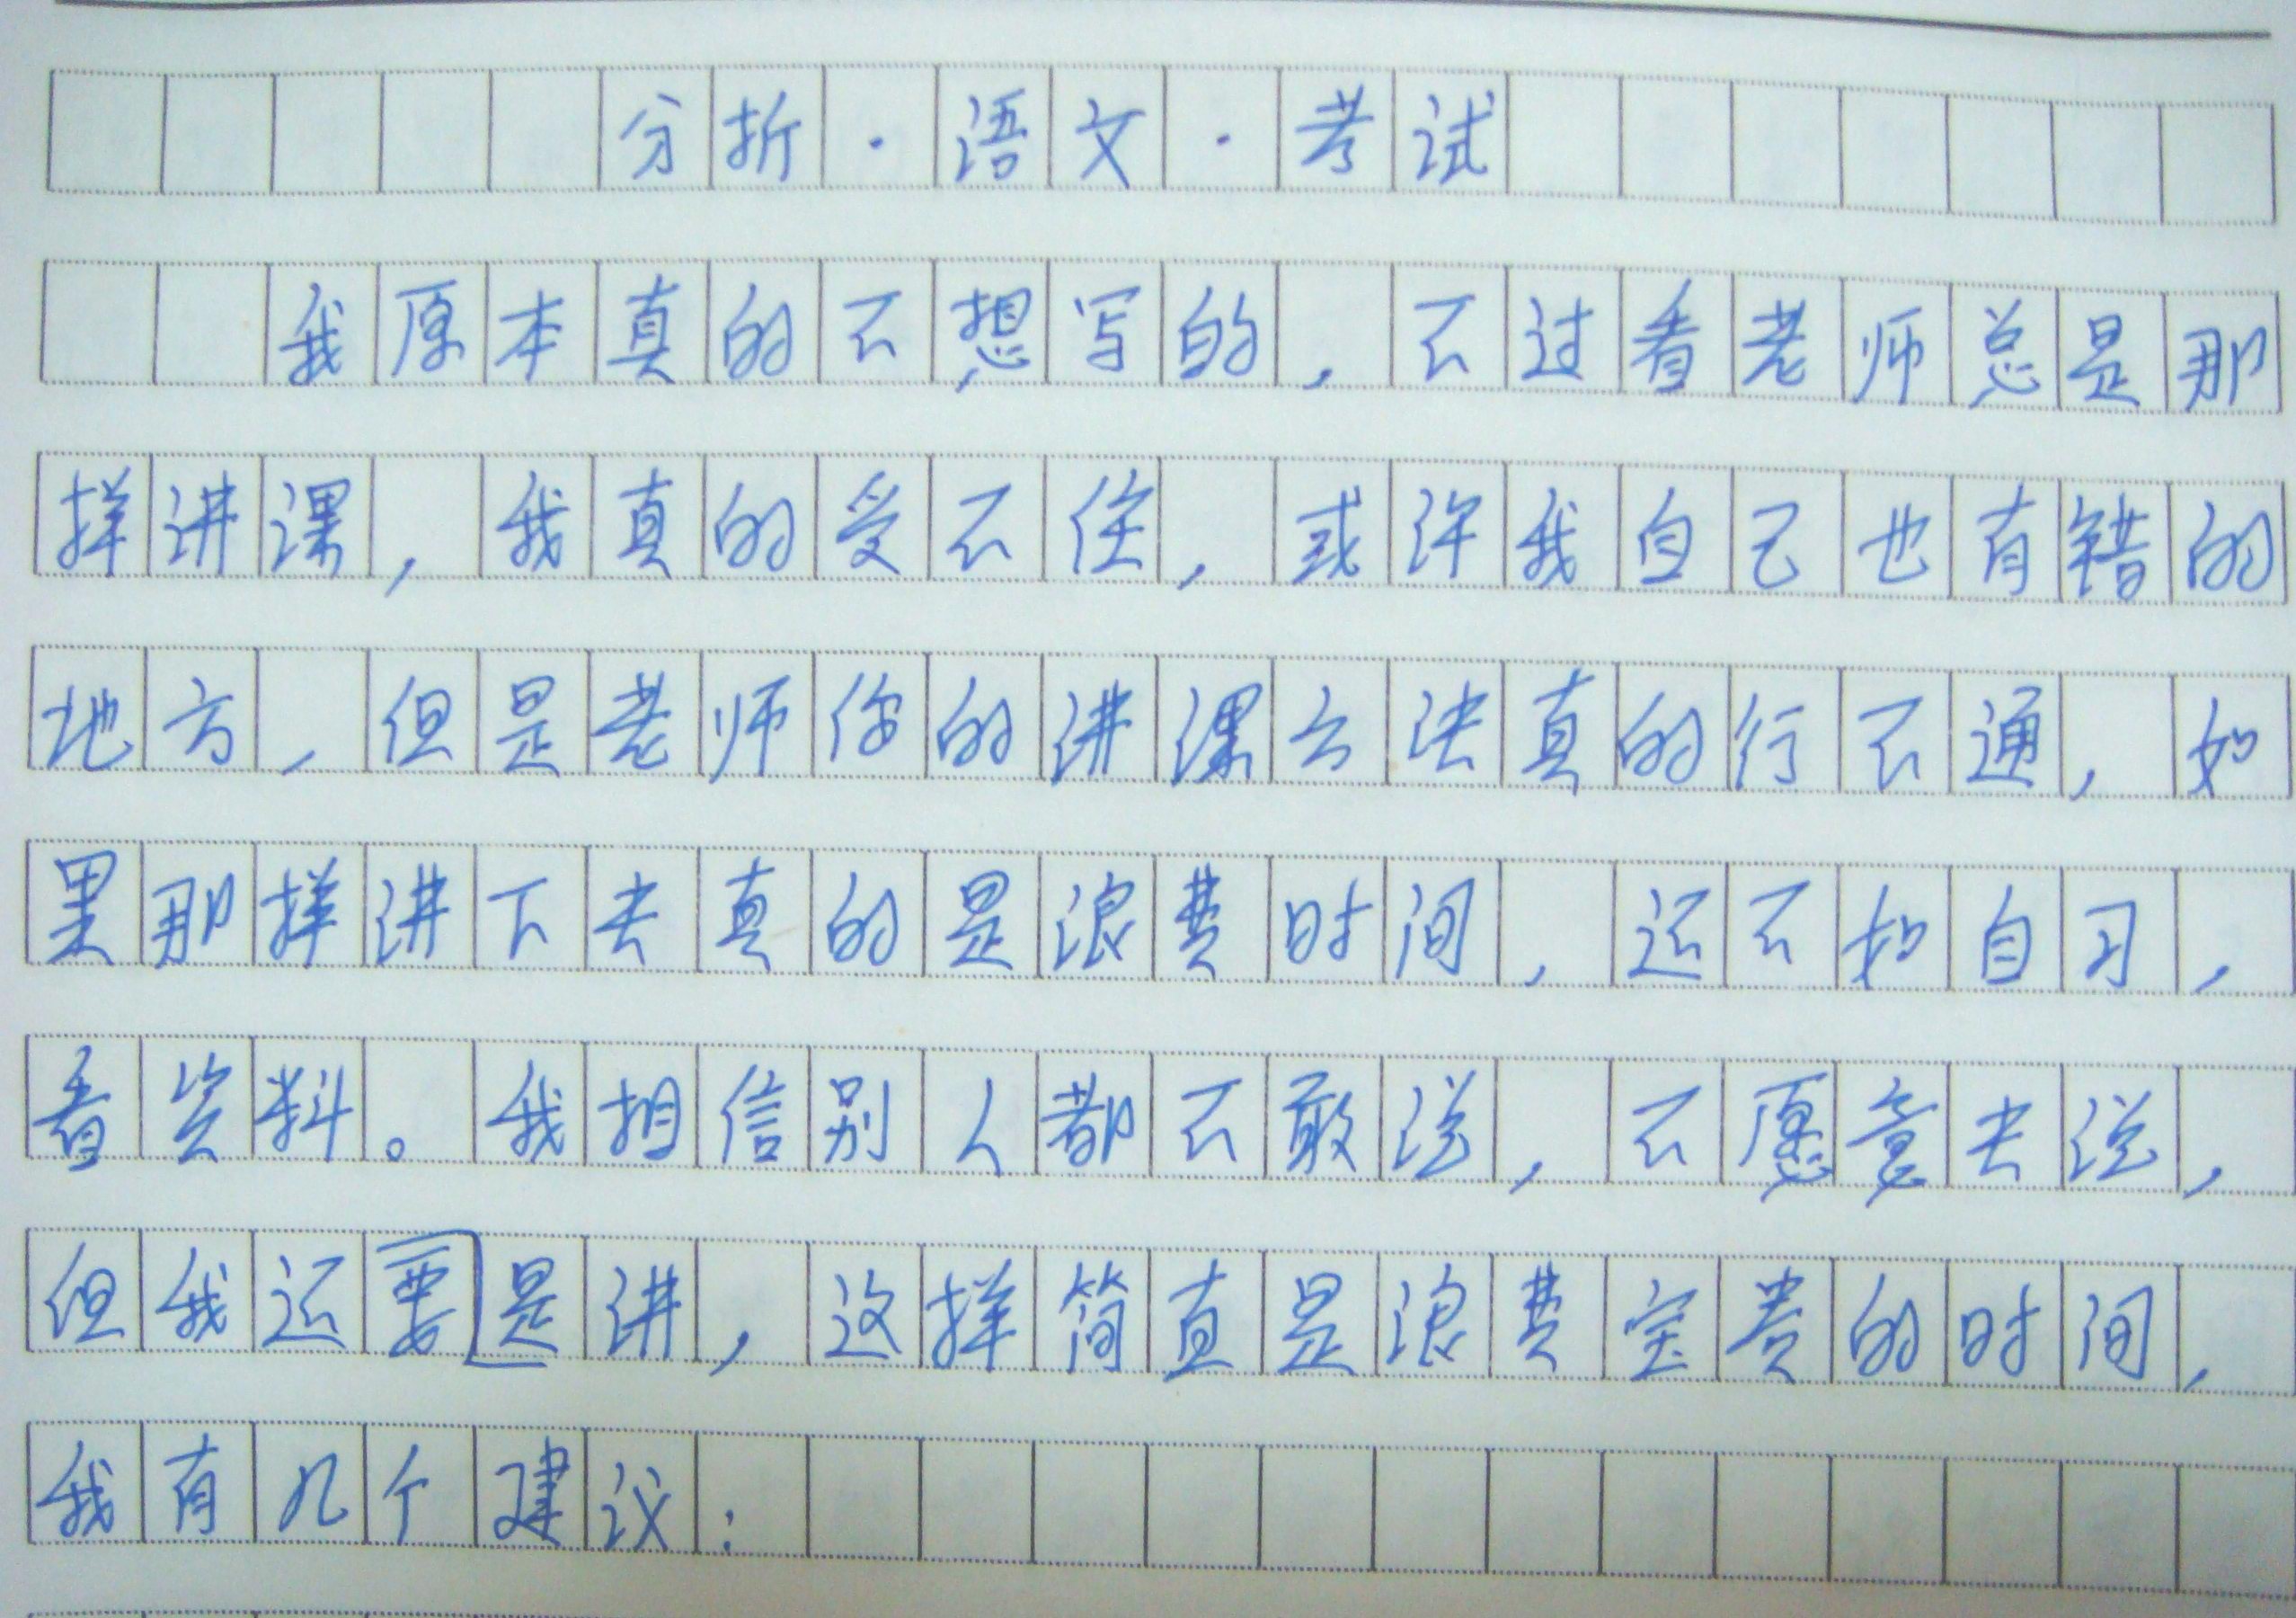 分析·语文·考试
我原本真的不想写的，不过看老师总是那
样讲课，我真的受不住，或许我自己也有错的
地方，但是老师你的讲课方法真的行不通，如
果那样讲下去真的是浪费时间，还不如自习，
看资料。我相信别人都不敢说，不愿意去说，
但我还要是讲，这样简直是浪费宝贵的时间，
我有几个建议：